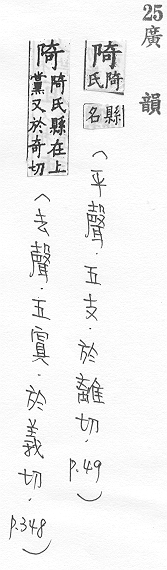 25廣韻
陭 陭氏縣名（平聲．五支．於離切．p.49）
陭 陭氏縣在上黨又於奇切（去聲．五寘．於義切．p.348）